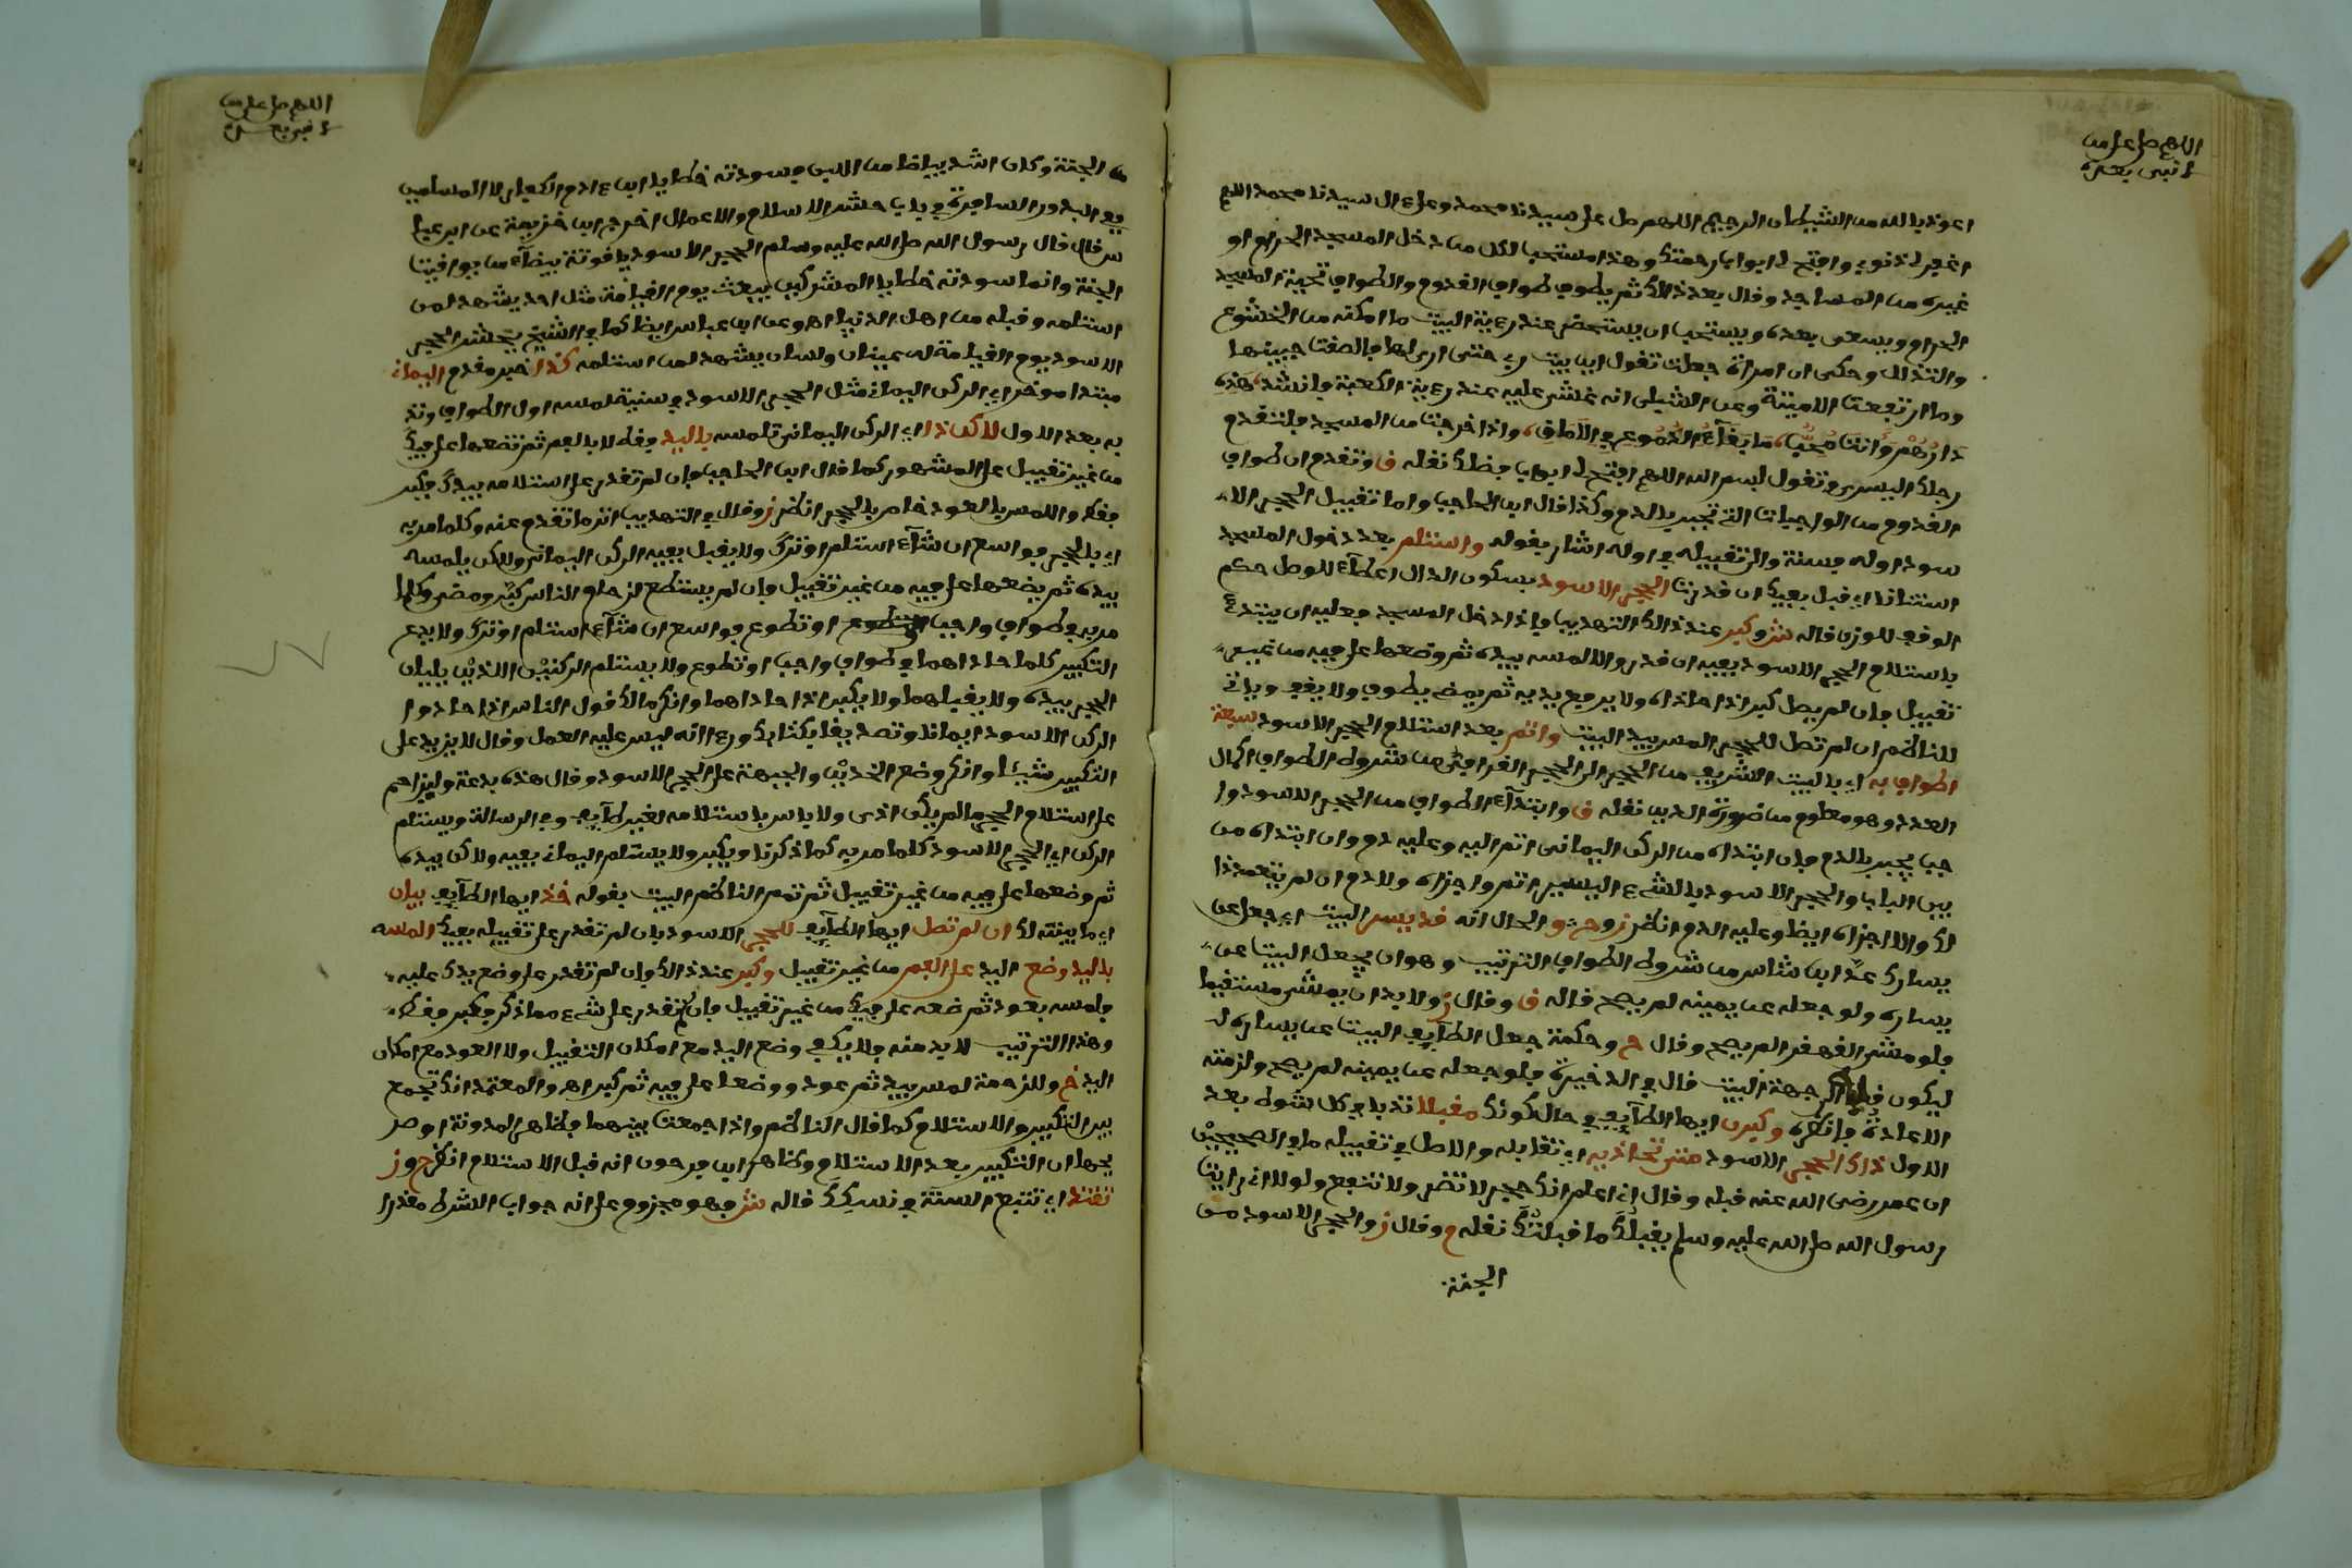 اللهم صل على من
لا نبي بعده
اعوذ بالله من الشيطان الرجيم اللهم صل على سيدنا محمد وعلى ءال سيدنا محمد اللهم
اغفر لي ذنوبي وافتح لي ابواب رحمتك وهذا مستحب لكل من دخل المسجد الحرام او
غيره من المساجد وقال بعد ذالك ثم يطوف طواف القدوم والطواف تحية المسجد
الحرام ويسعى بعده ويستحب ان يستحضر عند رءية البيت ما امكنه من الخشوع
والتذلل وحكي ان امراة جعلت تقول اين بيت ربي حتى اري لها فالصقت جبينها
وما ارتفعت الا ميتة وعن الشبلي انه غشي عليه عند رءية الكعبة وانشد هذه
دارهم وانت محب ما بقآء الدموع في الآماق واذا خرجت من المسجد فلتقدم
رجلك اليسرى وتقول بسم الله اللهم افتح لي ابواب فضلك نقله ق وتقدم ان طواف
القدوم من الواجبات التي تجبر بالدم وكذا قال ابن الحاجب واما تقبيل الحجر الا
سود اوله فسنة والى تقبيله في اوله اشار بقوله واستلم بعد دخول المسجد
استنانا اي قبل بفيك ان قدرت الحجر الاسود بسكون الدال اعطآء للوصل حكم
الوقف للوزن قاله ش وكبر عند ذالك التهذيب واذا دخل المسجد فعليه ان يبتدئ
باستلام الحجر الاسود بفيه ان قدر والا لمسه بيده ثم وضعها على فيه من غير
تقبيل فان لم يصل كبر اذا حاذاه ولا يرفع يديه ثم يمضي يطوف ولا يقف وياتي
للناظم ان لم تصل للحجر المس بيد البيت واتم بعد استلام الحجر الاسود سبعة
اطواف به اي بالبيت الشريف من الحجر الى الحجر القرافي من شروط الطواف اكمال
العدد وهو معلوم من ضرورة الدين نقله ق وابتدآء الطواف من الحجر الاسود وا
جب يجبر بالدم فان ابتداه من الركن اليماني اتم اليه وعليه دم وان ابتداه من
بين الباب والحجر الاسود بالشيء اليسير اتم واجزاه ولا دم ان لم يتعمد ذا
لك والا اجزاه ايضا وعليه الدم انظر ز وح و الحال انه قد يسر البيت اي جعل عن
يسارك عدّ ابن شاس من شروط الطواف الترتيب وهو ان يجعل البيت عن
يساره ولو جعله عن يمينه لم يصح قاله ق وقال ز ولا بد ان يمشي مستقيما
فلو مشى القهقرى لم يصح وقال ح وحكمة جعل الطآيف البيت عن يساره لـ
ليكون قلبه الى جهة البيت قال في الذخيرة فلو جعله عن يمينه لم يصح ولزمته
الاعادة فانظره وكبرن ايها الطآيف في حال كونك مقبلا ندبا في كل شوط بعد
الاول ذاك الحجر الاسود متى تحاذيه اي تقابله والاصل في تقبيله ما في الصحيحين
ان عمر رضي الله عنه قبله وقال اني اعلم انك حجر لا تضر ولا تنفع ولولا اني رايت
رسول الله صلى الله عليه وسلم يقبلك ما قبلتك نقله م وقال ز والحجر الاسود من
الجنة
اللهم صل على من
لا نبي بعده
الجنة وكان اشد بياضا من اللبن وسودته خطايا ابن ءادم الكفار لا المسلمين
في البدور السافرة في باب حشر الاسلام والاعمال اخرج ابن خزيمة عن ابن عبا
س قال قال رسول الله صلى الله عليه وسلم الحجر الاسود ياقوتة بيضآء من يواقيت
الجنة وانما سودته خطايا المشركين يبعث يوم القيامة مثل احد يشهد لمن
استلمه وقبله من اهل الدنيا اه وعن ابن عباس ايضا كما في الشيخ يحشر الحجر
الاسود يوم القيامة له عينان ولسان يشهد لمن استلمه كذا خبر مقدم اليماني
مبتدا موخر اي الركن اليماني مثل الحجر الاسود في سنية لمسه اول الطواف وند
به بعد الاول لاكن ذا اي الركن اليماني تلمسه باليد فقط لا بالفم ثم تضعها على فيك
من غير تقبيل على المشهور كما قال ابن الحاجب فان لم تقدر على استلامه بيدك فكبر
فقط واللمس بالعود خاص بالحجر انظر ز وقال في التهذيب اثر ما تقدم عنه وكلما مر به
اي بالحجر فواسع ان شآء استلم او ترك ولا يقبل بفيه الركن اليماني ولاكن يلمسه
بيده ثم يضعها على فيه من غير تقبيل فان لم يستطع لزحام الناس كبر ومضى وكلما
مر به في طواف واجب او تطوع فواسع ان شآء استلم او ترك ولا يدع
التكبير كلما حاذاهما في طواف واجب او تطوع ولا يستلم الركنين اللذين يليان
الحجر بيده ولا يقبلهما ولا يكبر اذا حاذاهما وانكر مالك قول الناس اذا حاذوا
الركن الاسود ايمانا وتصديقا بكتابك ورءا انه ليس عليه العمل وقال لا يزيد على
التكبير شيئا وانكر وضع الخدين والجبهة على الحجر الاسود وقال هذه بدعة وليزاحم
على استلام الحجر ما لم يكن اذى ولا باس باستلامه لغير طآيف وفي الرسالة ويستلم
الركن اي الحجر الاسود كلما مر به كما ذكرنا ويكبر ولا يستلم اليماني بفيه ولاكن بيده
ثم وضعها على فيه من غير تقبيل ثم تمم الناظم البيت بقوله خذ ايها الطآيف بيان
اي ما بينته لك ان لم تصل ايها الطآيف للحجر الاسود بان لم تقدر على تقبيله بفيك المسه
باليد وضع اليد على الفم من غير تقبيل وكبر عند ذالك وان لم تقدر على وضع يدك عليه
فلمسه بعود ثم ضعه على فيك من غير تقبيل فان لم تقدر على شيء مما ذكر فكبر فقط
وهذا الترتيب لا بد منه ولا يكفي وضع اليد مع امكان التقبيل ولا العود مع امكان
اليد خ وللزحمة لمس بيد ثم عود ووضعا على فيه ثم كبر اه والمعتمد انك تجمع
بين التكبير والاستلام كما قال الناظم واذا جمعت بينهما فظاهر المدونة او صر
يحها ان التكبير بعد الاستلام وظاهر ابن فرحون انه قبل الاستلام انظر ح وز
تقتد اي تتبع السنة في نسكك قاله ش وهو مجزوم على انه جواب الشرط مقدرا